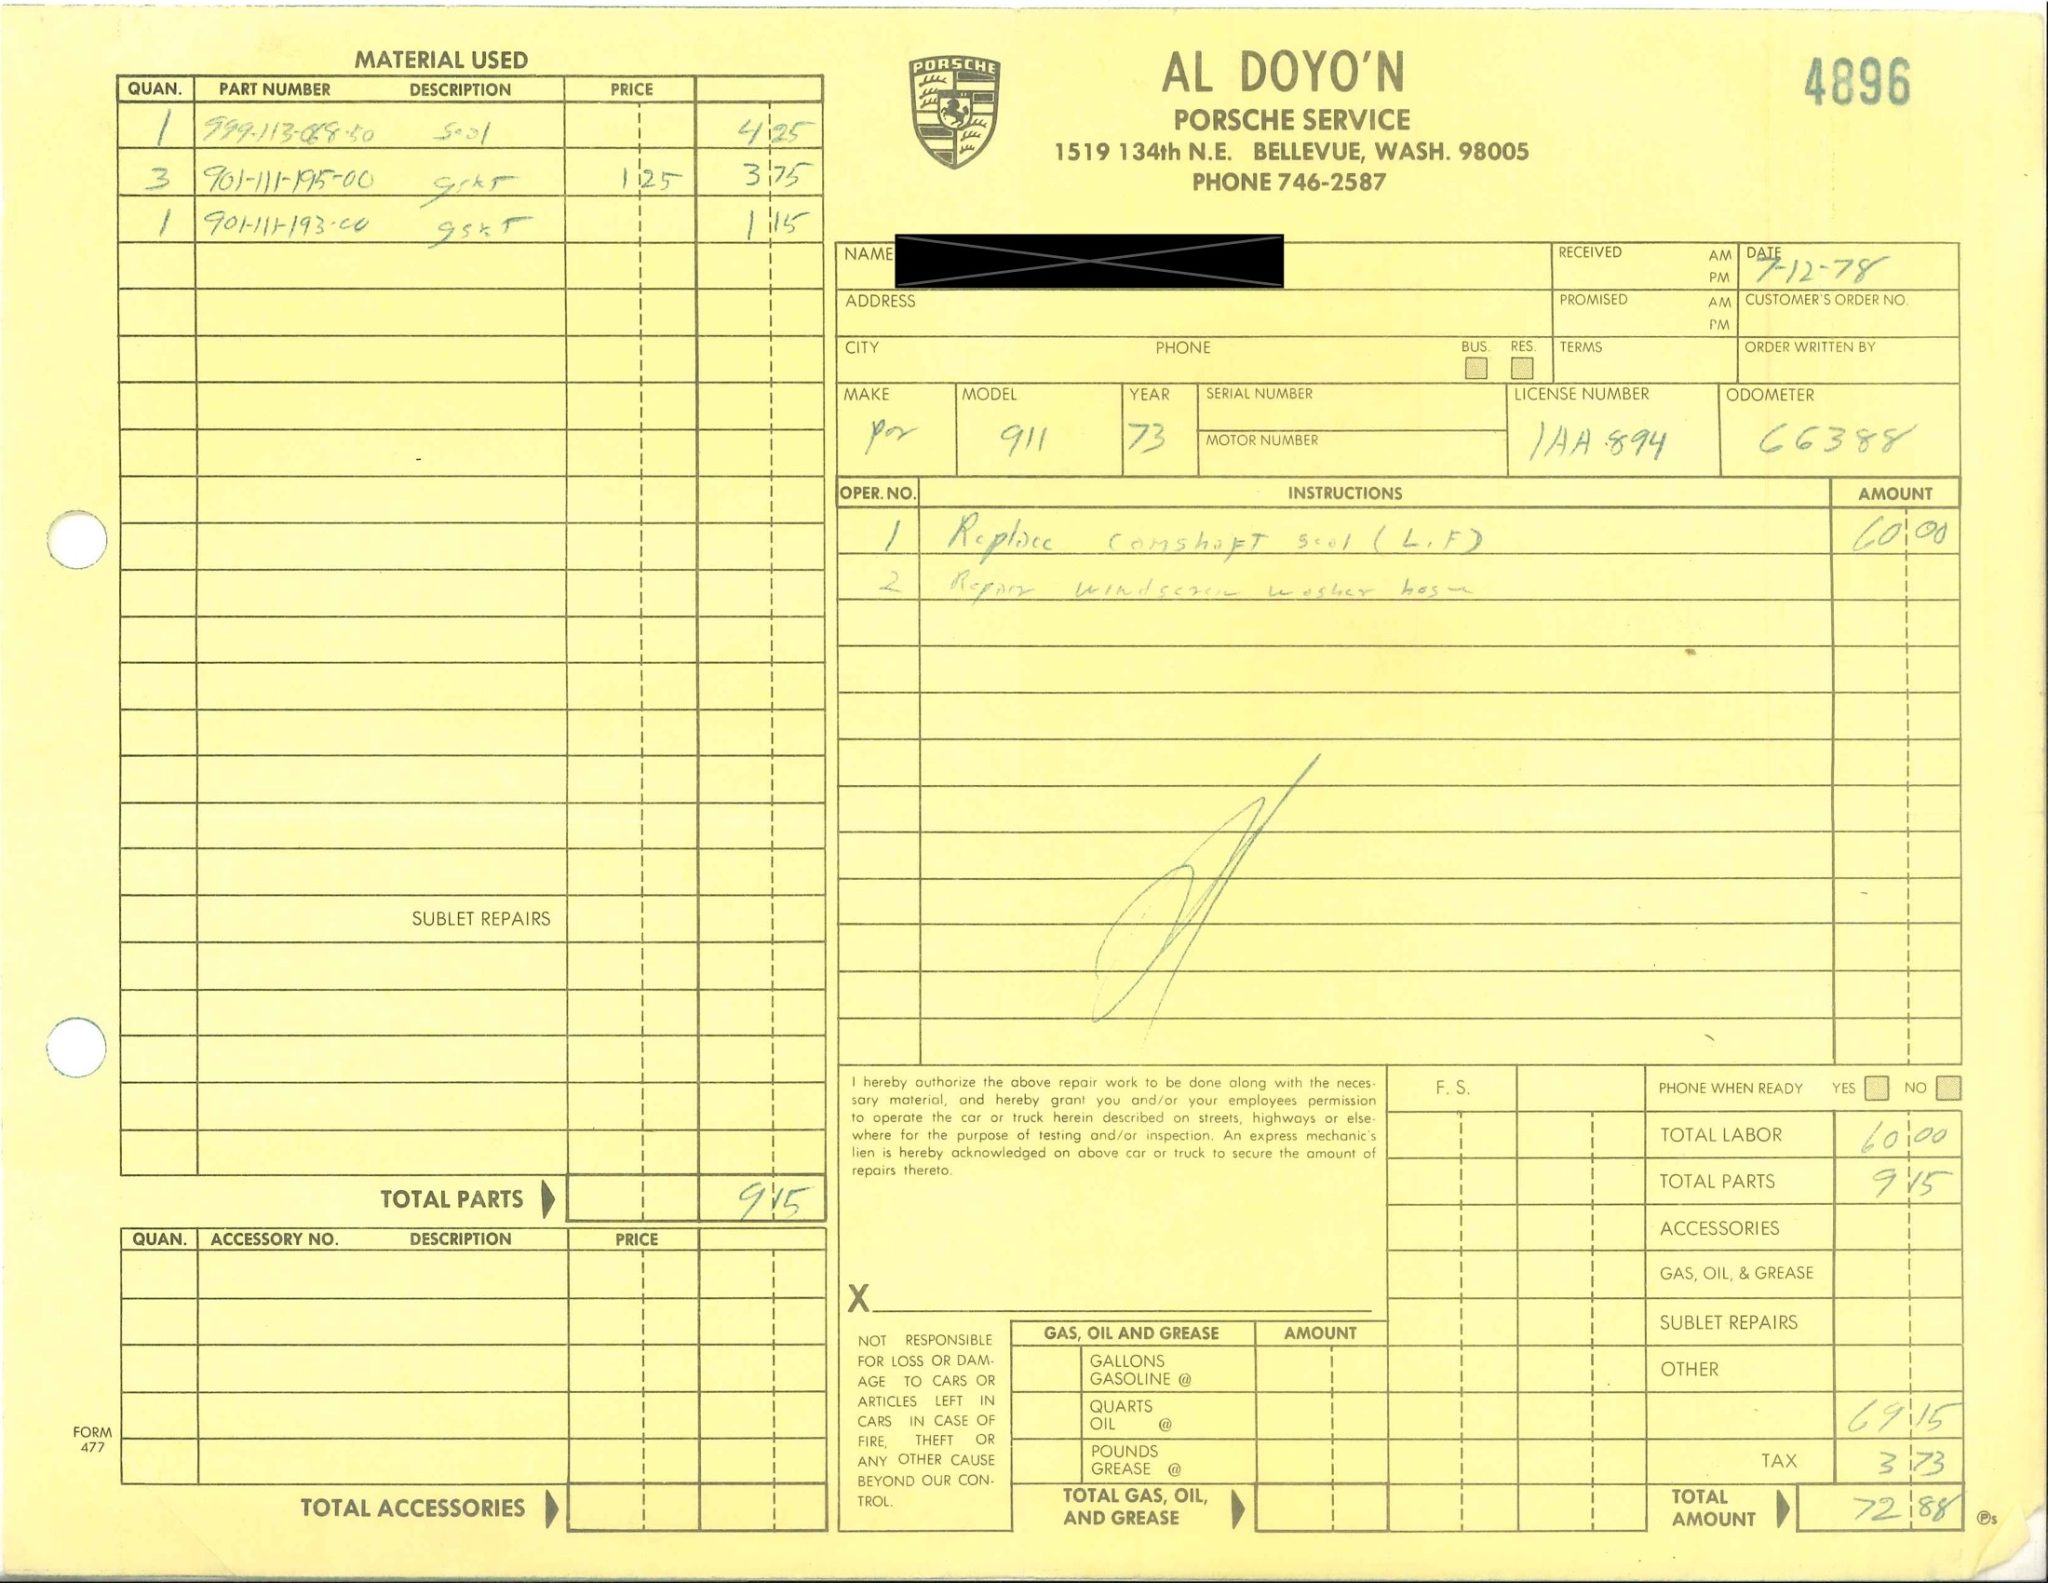 MATERIAL USED
QUAN. PART NUMBER DESCRIPTION PRICE
1 999-113-068-50 seal 4 25
3 901-111-195-00 gskt 1 25 3 75
1 901-111-193-00 gskt 1 15
SUBLET REPAIRS
TOTAL PARTS 9 15
QUAN. ACCESSORY NO. DESCRIPTION PRICE
TOTAL ACCESSORIES
FORM
477
PORSCHE
AL DOYO'N
PORSCHE SERVICE
1519 134th N.E. BELLEVUE, WASH. 98005
PHONE 746-2587
4896
NAME RECEIVED AM PM DATE 7-12-78
ADDRESS PROMISED AM PM CUSTOMER'S ORDER NO.
CITY PHONE BUS. RES. TERMS ORDER WRITTEN BY
MAKE MODEL YEAR SERIAL NUMBER LICENSE NUMBER ODOMETER
por 911 73 MOTOR NUMBER 1AA 894 66388
OPER. NO. INSTRUCTIONS AMOUNT
1 Replace camshaft seal (L.F) 60 00
2 Repair windscreen washer hose
I hereby authorize the above repair work to be done along with the neces-
sary material, and hereby grant you and/or your employees permission
to operate the car or truck herein described on streets, highways or else-
where for the purpose of testing and/or inspection. An express mechanic's
lien is hereby acknowledged on above car or truck to secure the amount of
repairs thereto.
X
NOT RESPONSIBLE
FOR LOSS OR DAM-
AGE TO CARS OR
ARTICLES LEFT IN
CARS IN CASE OF
FIRE, THEFT OR
ANY OTHER CAUSE
BEYOND OUR CON-
TROL.
GAS, OIL AND GREASE AMOUNT
GALLONS
GASOLINE @
QUARTS
OIL @
POUNDS
GREASE @
TOTAL GAS, OIL,
AND GREASE
F. S.
PHONE WHEN READY YES NO
TOTAL LABOR 60 00
TOTAL PARTS 9 15
ACCESSORIES
GAS, OIL, & GREASE
SUBLET REPAIRS
OTHER
69 15
TAX 3 73
TOTAL
AMOUNT 72 88